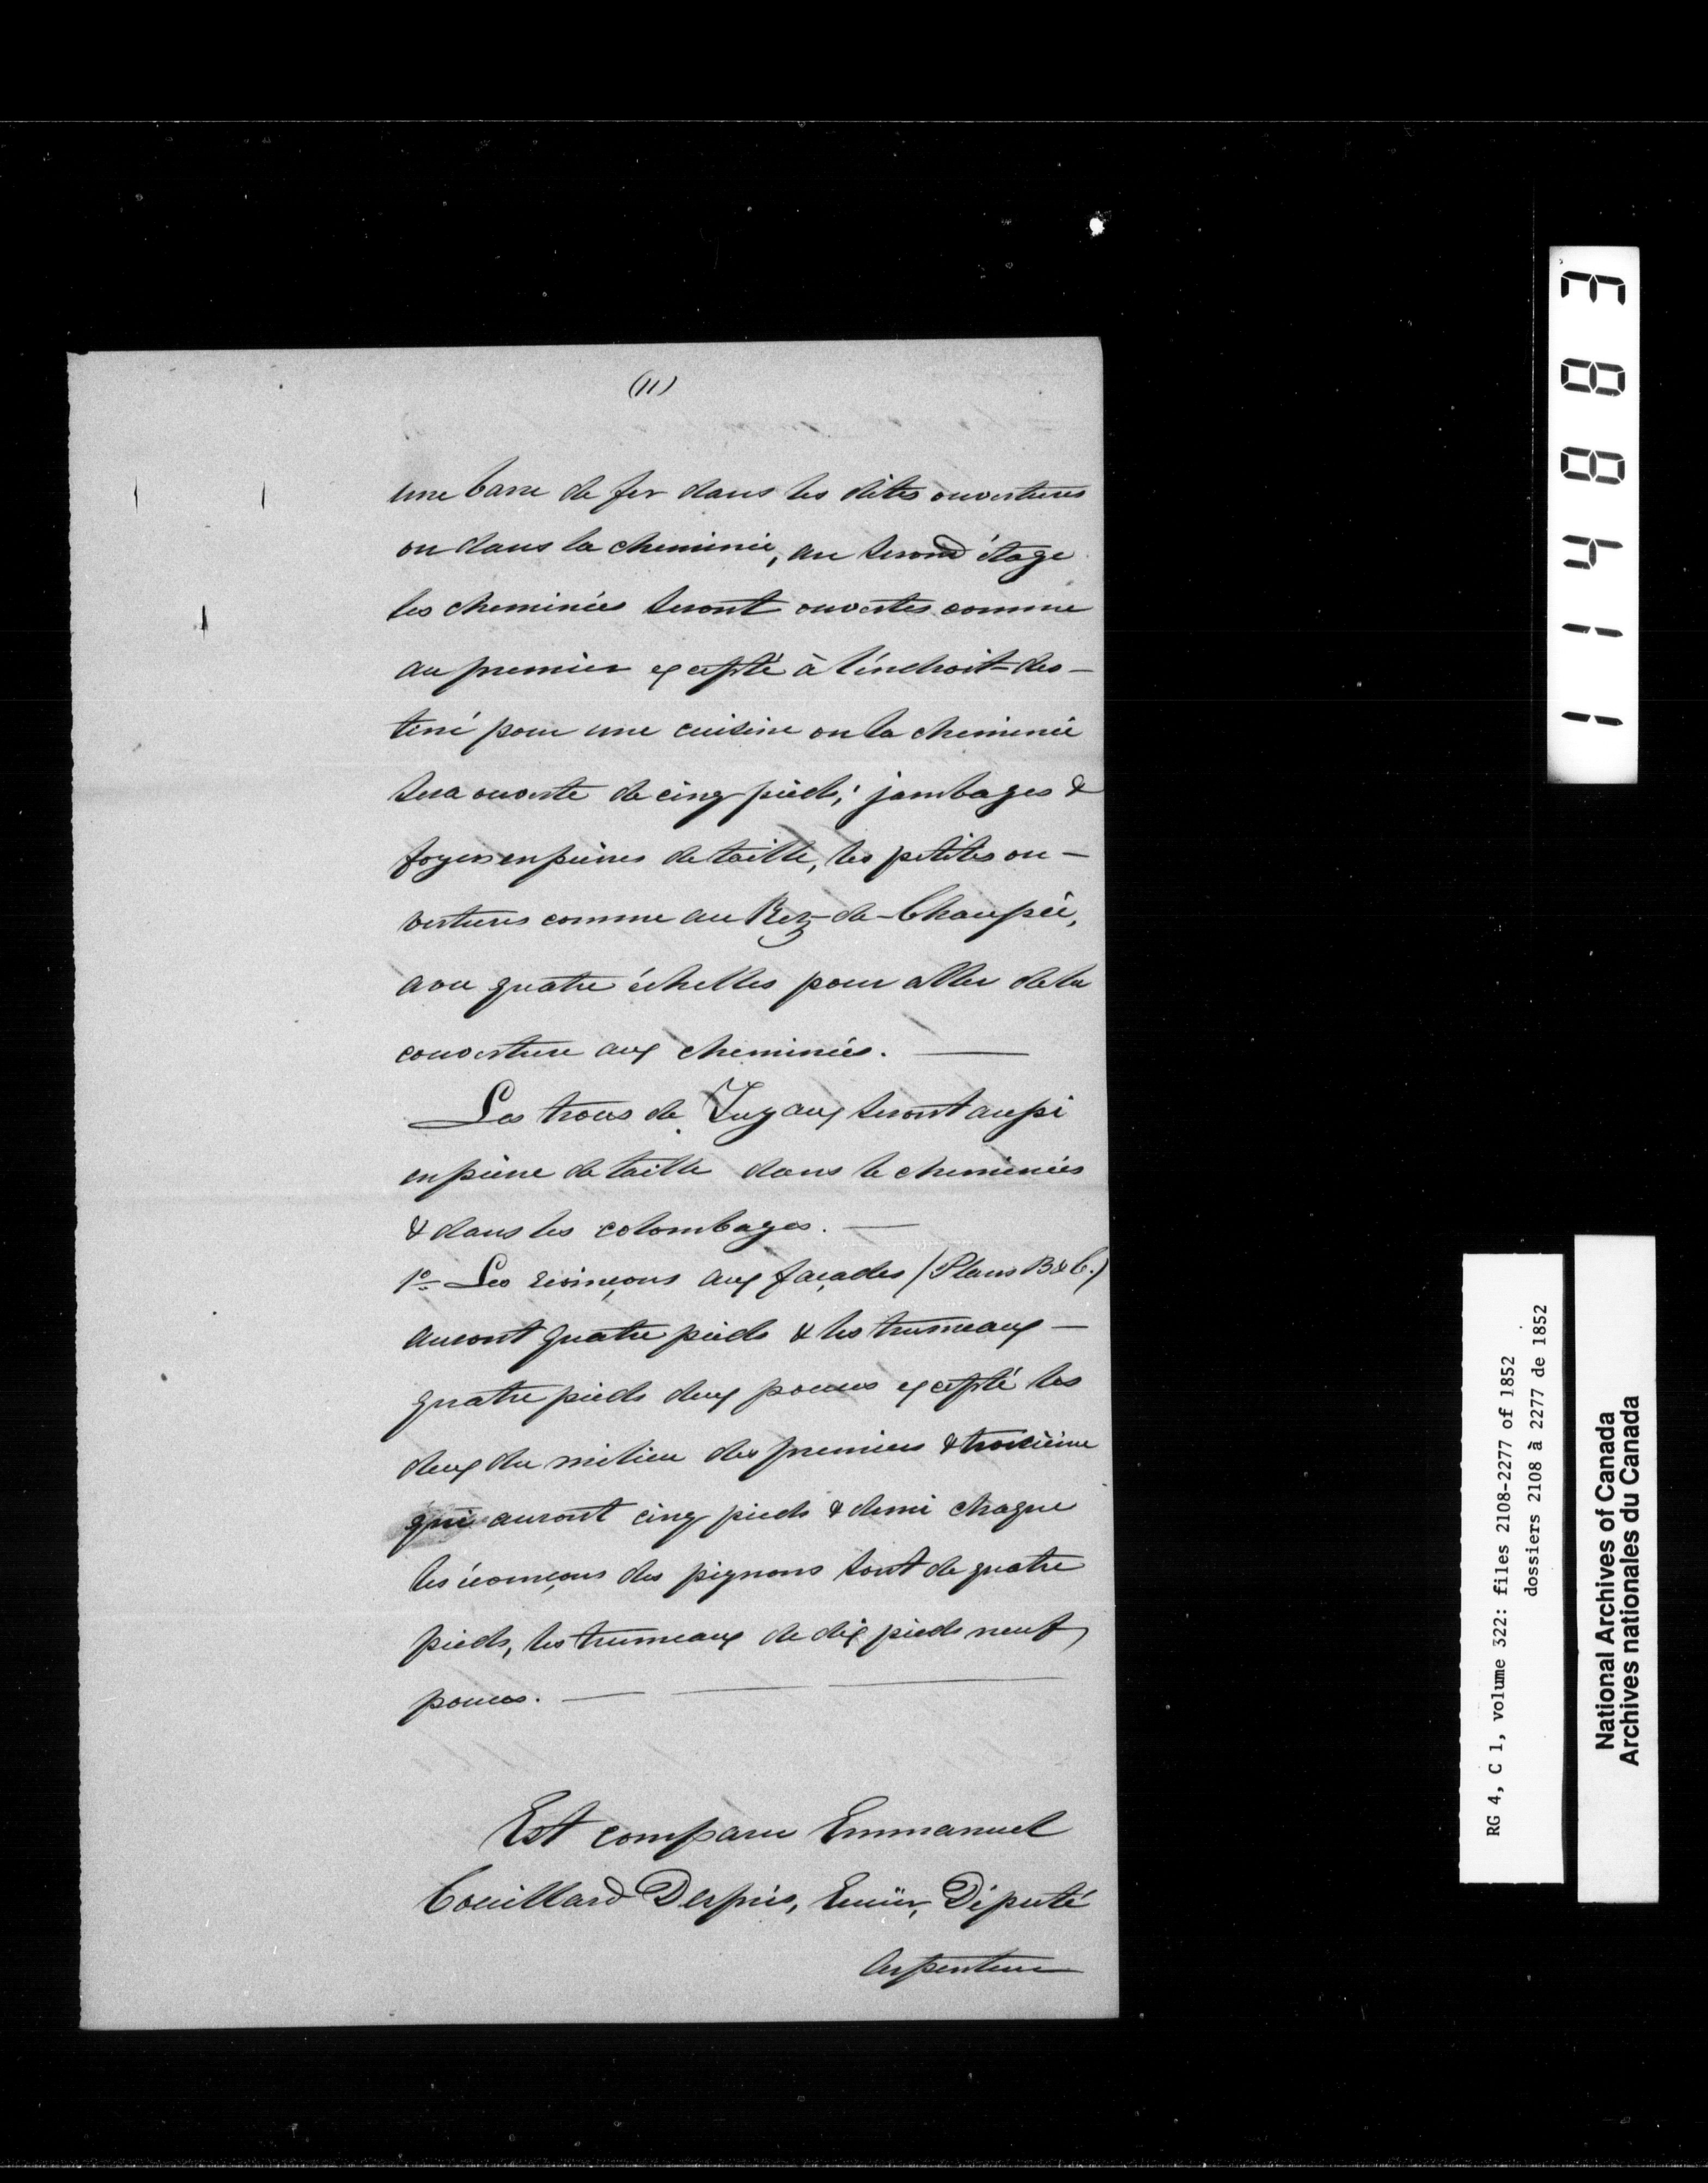 (11)
une barre de fer dans les dites ouvertures
ou dans la cheminée, au second étage
les cheminées seront ouvertes comme
au premier excepté à l'endroit des-
tiné pour une cuisine ou la cheminée
sera ouverte de cinq pieds; jambages &
foyers en pierres de taille, les petites ou-
vertures comme au Rez-de-Chaussée,
avec quatre échelles pour aller de la
couverture aux cheminées. —
Les trous de Tuyaux seront aussi
en pierre de taille dans le cheminées
& dans les colombages. —
1º Les écoinçons aux façades (Plans B & C.)
auront quatre pieds & les trumeaux —
quatre pieds deux pouces excepté les
deux du milieu des premiers & troisième
qui auront cinq pieds & demi chaque
les écoinçons des pignons sont de quatre
pieds, les trumeaux de dix pieds neuf
pouces. — — —
Est comparu Emmanuel
Couillard Després, Ecuier, Député
Arpenteur
114883
RG 4, C 1, volume 322: files 2108-2277 of 1852
dossiers 2108 à 2277 de 1852
National Archives of Canada
Archives nationales du Canada